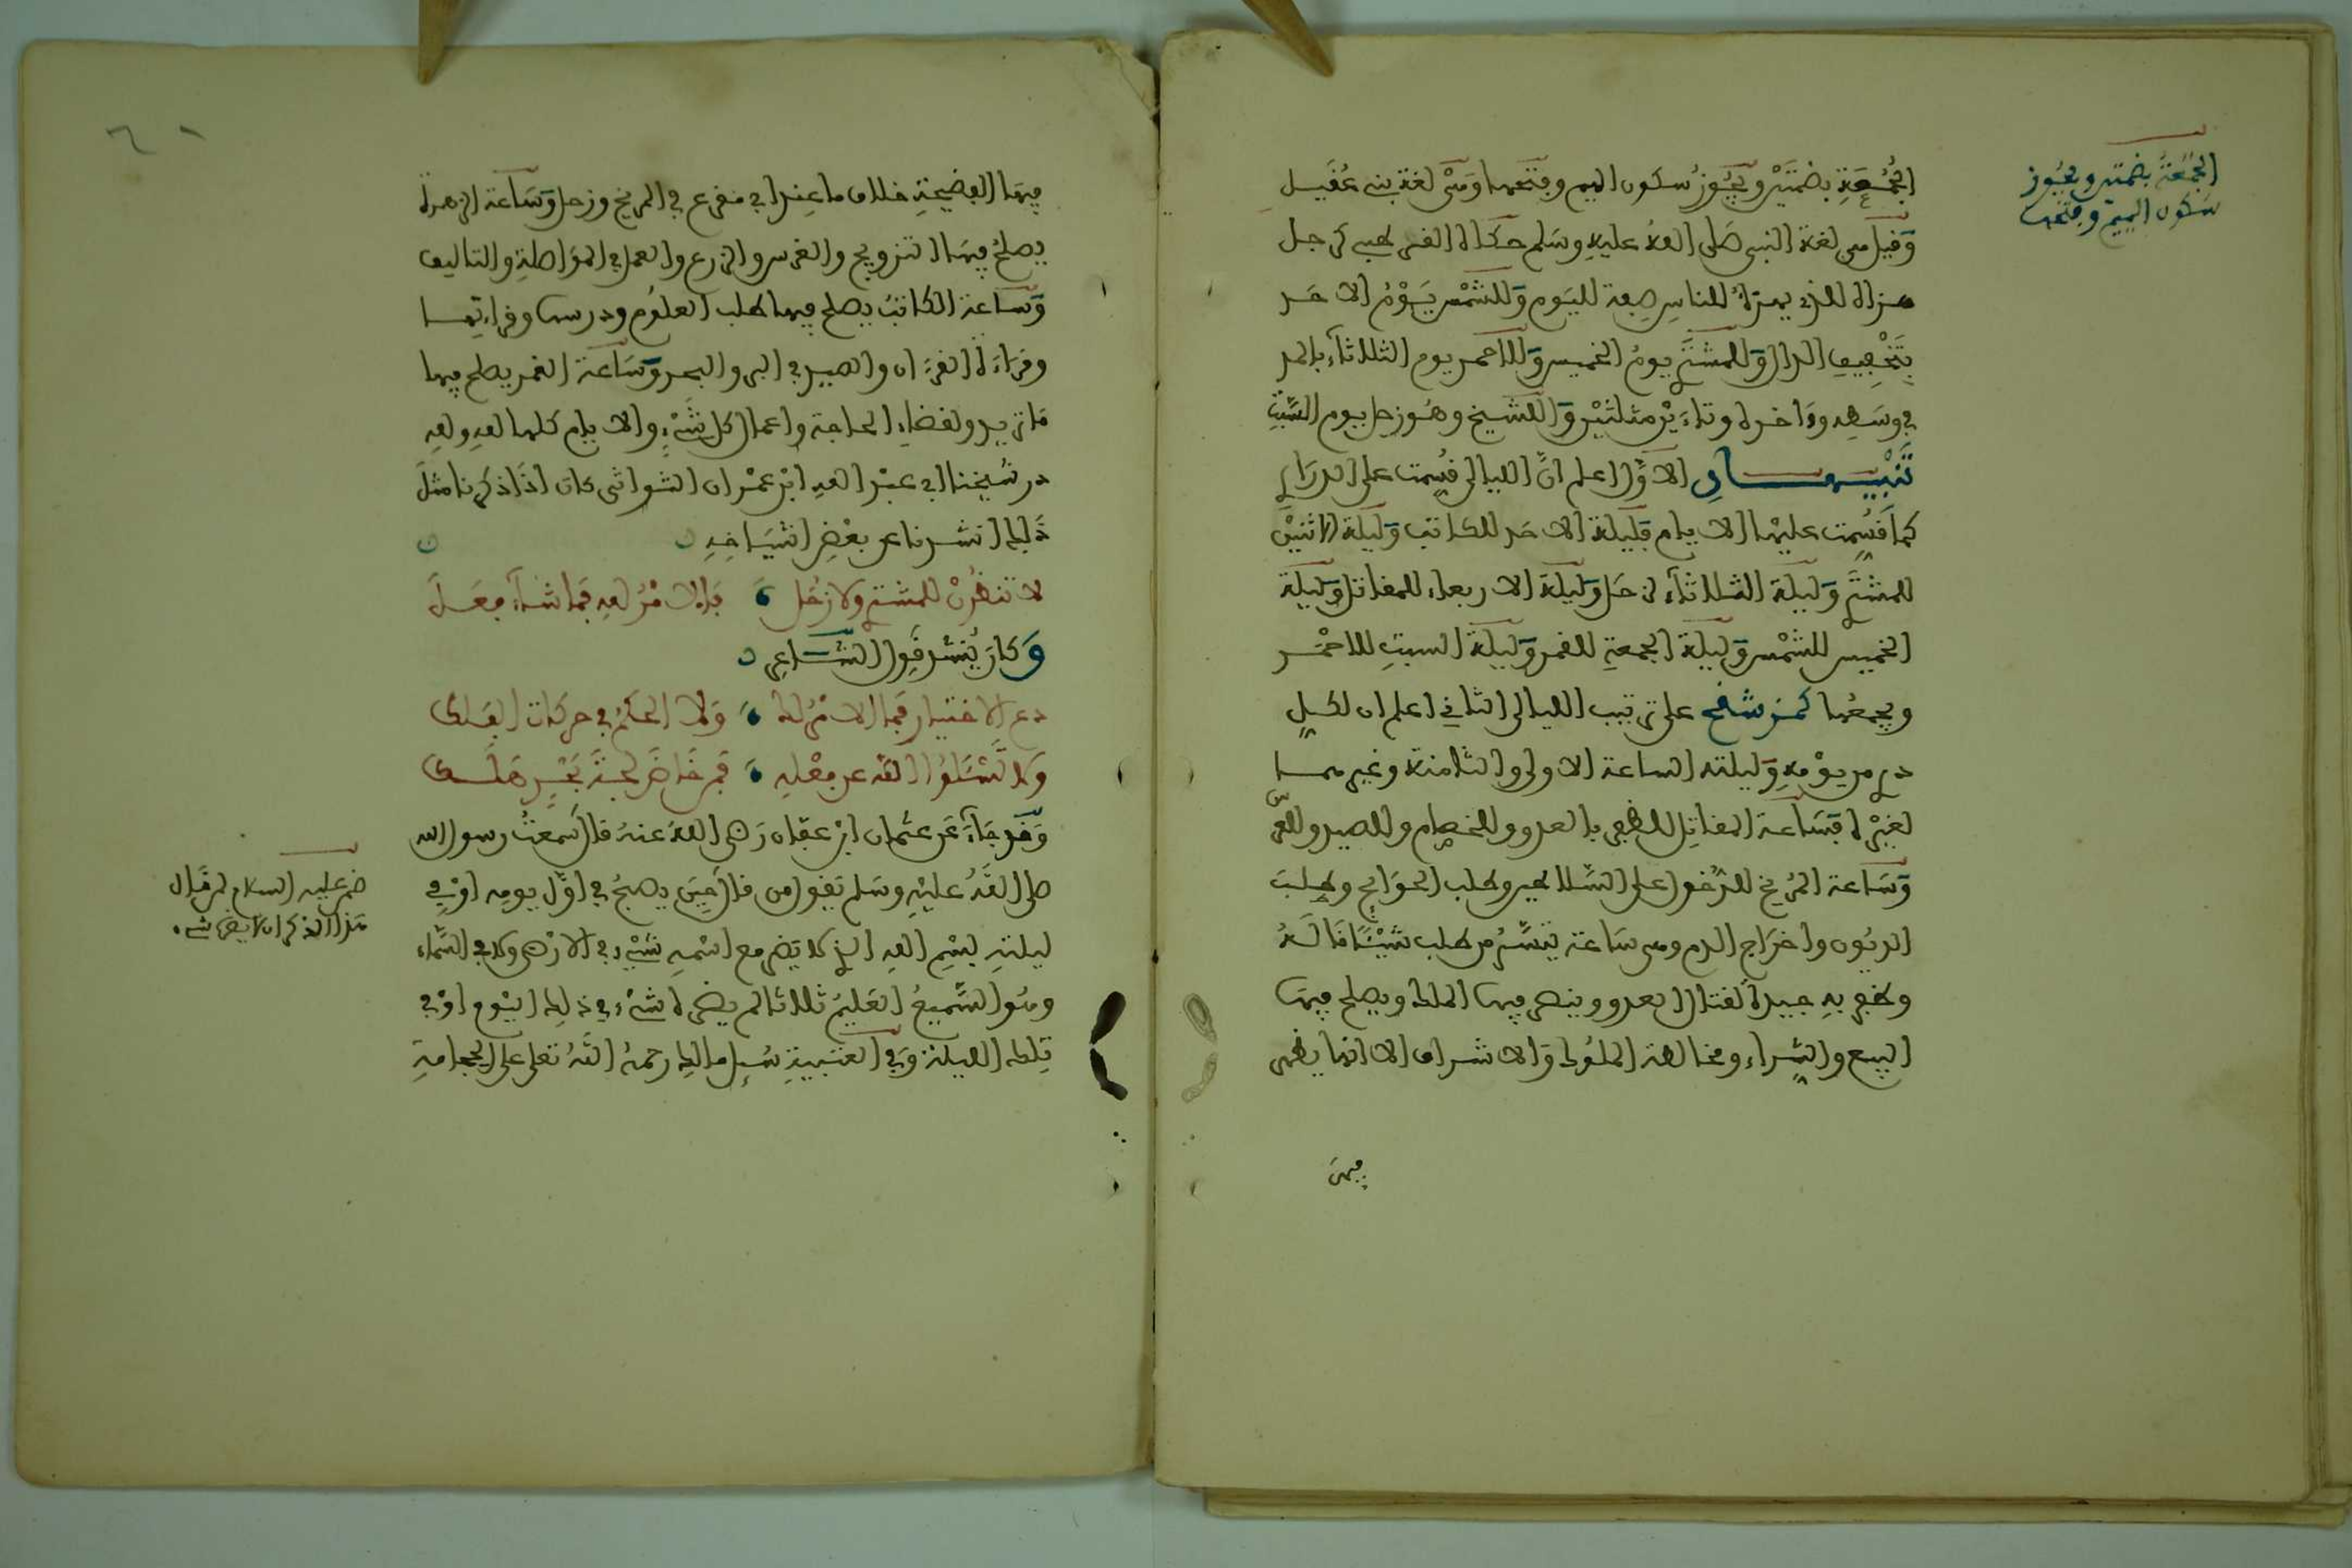 الجُمُعَةِ بضمتَيْن ويَجُوزُ سكون الميم وفتحها وهْى لغة بنى عُقَيل
وَقيل هى لغة النبى صَلى اللهُ عليهِ وسَلم حكاه القرطبى كرجل
هزأة للذى يهزأُ للناس صِفة لليَوم وَللشمْس يَوْمُ الاحَد
بتَخْفِيفِ الدال وَللمُشتَرِى يومُ الخميس وَللاحمر يوم الثلاثاء بالمد
فى وسَطِه وءَاخره وتاءَيْن مثلثتَيْن وَللشيخ وهُو زحل يوم السَّبْتِ
تَنْبِيهَانِ الاوَّل اعلم انَّ الليالى قُسِمت على الدرَارِى
كما قُسِمت عليْها الايام فَلَيلة الاحَد للكاتب وَلَيلة الاثنَيْن
للمشترى وَلَيلة الثلاثاء لزحَل وَلَيلة الاربعاء للمقاتل وَلَيلة
الخميس للشمْس وَلَيلة الجمعةِ للقمر وَلَيلة السبتِ للاحْمر
ويجمعُها كمز شقح على ترتيب الليالى الثانى اعلم ان لكلٍ
درى من يوْمهِ وَليلته الساعة الاولى والثامنة وغيرهما
لغيْره فسَاعة المقاتِل للظفر بالعدو وللخصام وللصيد وللغرس
وَسَاعة المرِّيخ للدُّخول على السَّلاطين وطلب الحوَائج وطلب
الديُون واخرَاج الدم وهى سَاعة تيَسُّر من طلب شيْئًا نَالَهُ
وظفر بهِ جيدة لقتال العدو وينصر فيها الملك ويصلح فيهَا
البيع والشِّراء ومخالطة الملُوك وَالاشراف الا انها يظهر
فيهَا
الجُمُعَةُ بضمتين ويجُوز
سَكون الميم وفتحها
فيهَا الفضيحَةِ خلاف ما عِند ابى مقرع فى المريخ وزحل وَسَاعة الزهرة
يصلحُ فيهَا التزويج والغرس والزرع والعمل فى المؤاصلةِ والتاليف
وَسَاعة الكاتبُ يصلح فيها طلب العلُوم ودرسها وقراءتها
وقرَاءة القرءان والصيد فى البر والبحر وَسَاعة القمر يصلح فيها
مَا تريد ولقضاءِ الحاجة واعمال كل شَىْءٍ والايام كلها للهِ وللهِ
در شيْخنا ابى عبْد اللهِ ابْن عمْران الشواشى كان اذَا ذكرنا مثلَ
ذَلِك انشدنا عن بعْضِ اشيَاخِهِ
لا تنظُرنْ للمشترى ولا زحَل فَالامْرُ للهِ فمَا شاءَ فعَل
وَكان يُنْشد قَول الشَّاعِر
دع الاختيار فمَا الامْرُ لك وَلا الحكمُ فى حركات الفلك
وَلا تَسْئلُوا الله عن فعْلِهِ فمن خَاضَ لجةَ بَحْرٍ هَلَك
وَقد جَاءَ عَن عثمان ابْن عفان رَضى اللهُ عنهُ قال سَمعتُ رسول الله
صلى اللهُ عليْهِ وسَلم يقول من قال حِينَ يصبحُ فى اوَّل يومِه اوْ فى
ليلتهِ بسْمِ اللهِ الذى لا يَضر مع اسْمهِ شىْءٌ فى الارْض ولا فى السَّماء
وهُو السَّميعُ العَليمُ ثلاثا لم يضره شىْء فى ذلِك اليَوم اوْ فى
تِلك الليلة وَفى العتبيةِ سُئِل مالِك رحمهُ اللهُ تعلى على الحجامةِ
عليه السلام لمن قال
هَذا الذكر ان لا يضره شىء